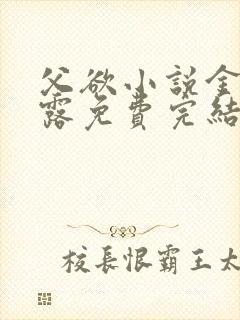 父欲小説金
露免費完結
校長恨霸王太